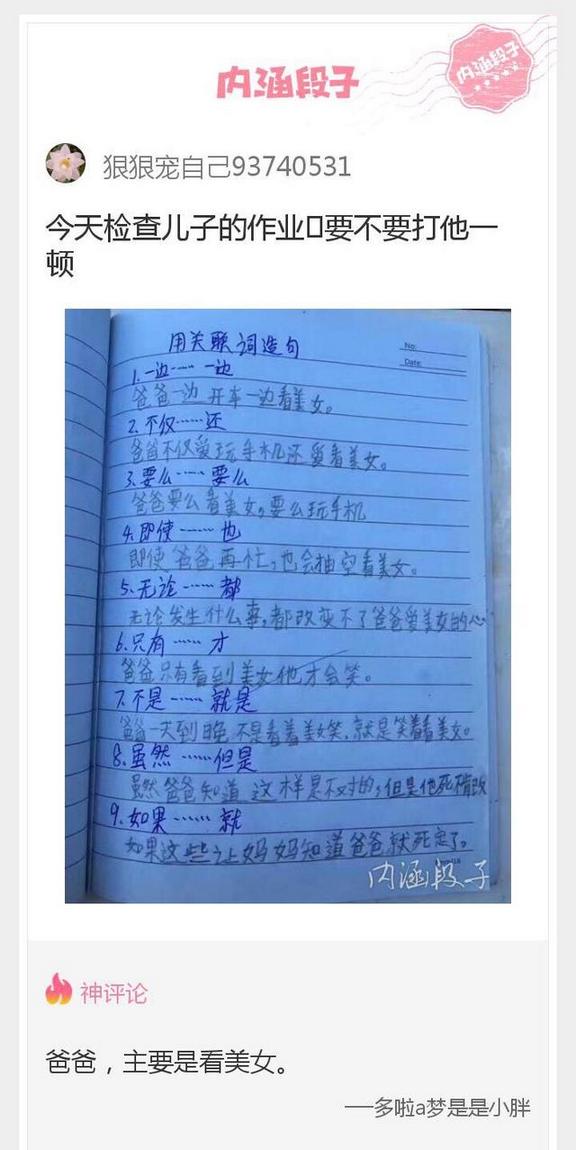 内涵段子
内涵段子
狠狠宠自己93740531
今天检查儿子的作业▯要不要打他一
顿
用关联词造句
No:
Date:
1.一边……一边
爸爸一边开车一边看美女。
2.不仅……还
爸爸不仅爱玩手机还爱看美女。
3.要么……要么
爸爸要么看美女,要么玩手机
4.即使……也
即使爸爸再忙,也会抽空看美女。
5.无论……都
无论发生什么事,都改变不了爸爸爱美女的心
6.只有……才
爸爸只有看到美女他才会笑。
7.不是……就是
爸爸一天到晚不是看着美女笑,就是笑着看美女。
8.虽然……但是
虽然爸爸知道这样是不对的,但是他死不悔改
9.如果……就
如果这些让妈妈知道爸爸就死定了。
内涵段子
神评论
爸爸，主要是看美女。
──多啦a梦是是小胖